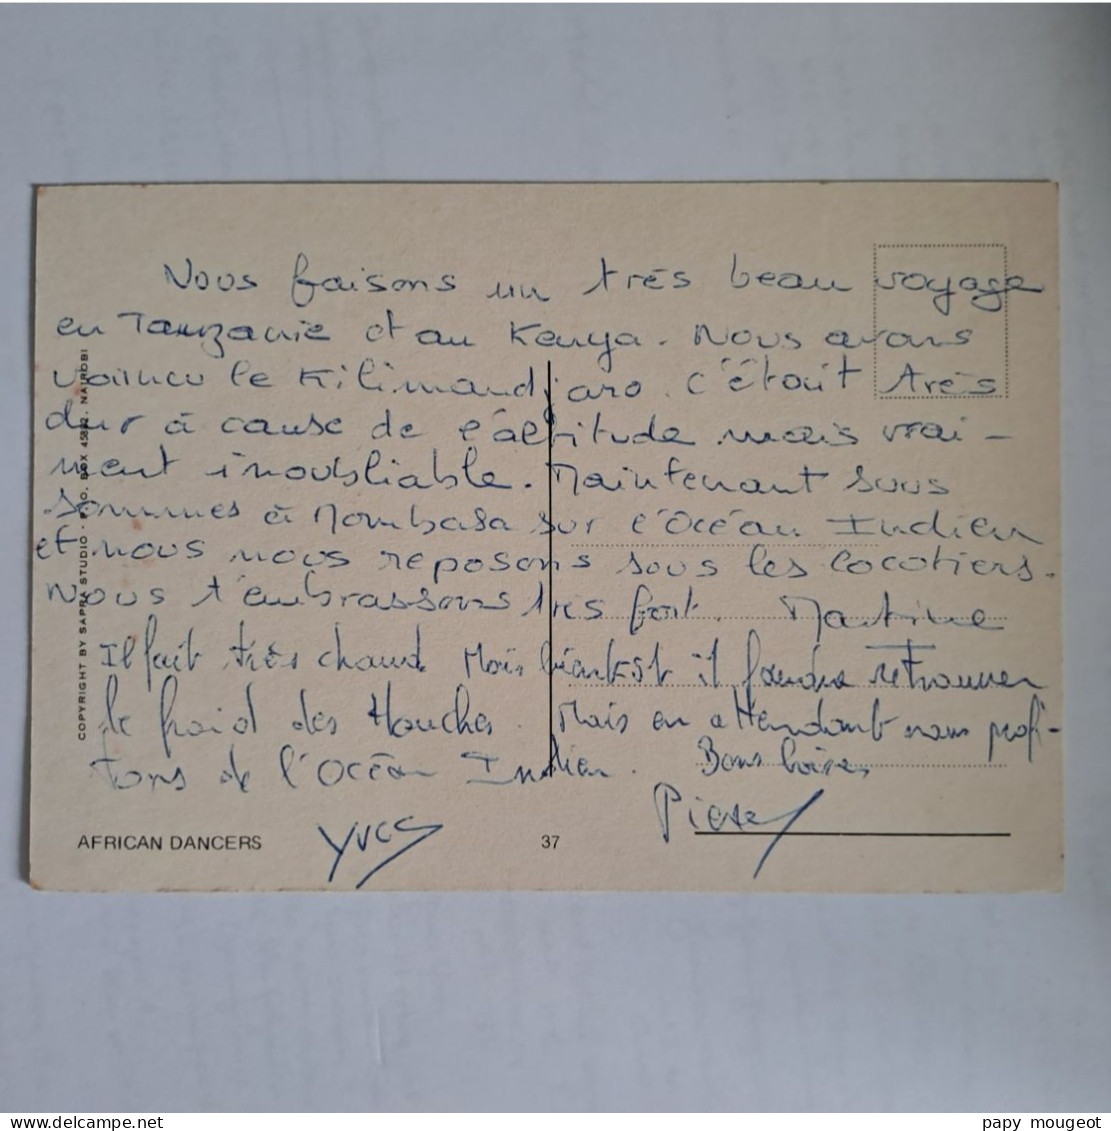 Nous faisons un très beau voyage
en Tanzanie et au Kenya. Nous avons
vaincu le Kilimandjaro. C'était très
dur à cause de l'altitude mais vrai-
ment inoubliable. Maintenant sous
sommes à Mombasa sur l'Océan Indien
et nous nous reposons sous les cocotiers.
Nous t'embrassons très fort. Martine
Il fait très chaud Mais bientôt il faudra retrouver
le froid des Houches. Mais en attendant nous profi-
tons de l'Océan Indien. Bons baisers
Yves
AFRICAN DANCERS
37
COPYRIGHT BY SAPRA STUDIO - P.O. BOX 45882, NAIROBI
delcampe.net
papy mougeot